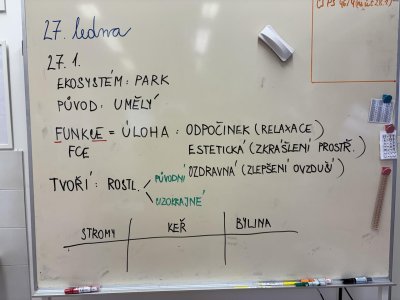 27. ledna
27. 1.
EKOSYSTÉM: PARK
PŮVOD: UMĚLÝ
FUNKCE = ÚLOHA: ODPOČINEK (RELAXACE)
FCE ESTETICKÁ (ZKRÁŠLENÍ PROSTŘ.)
OZDRAVNÁ (ZLEPŠENÍ OVZDUŠÍ)
TVOŘÍ: ROSTL. PŮVODNÍ
CIZOKRAJNÉ
STROMY KEŘ BYLINA